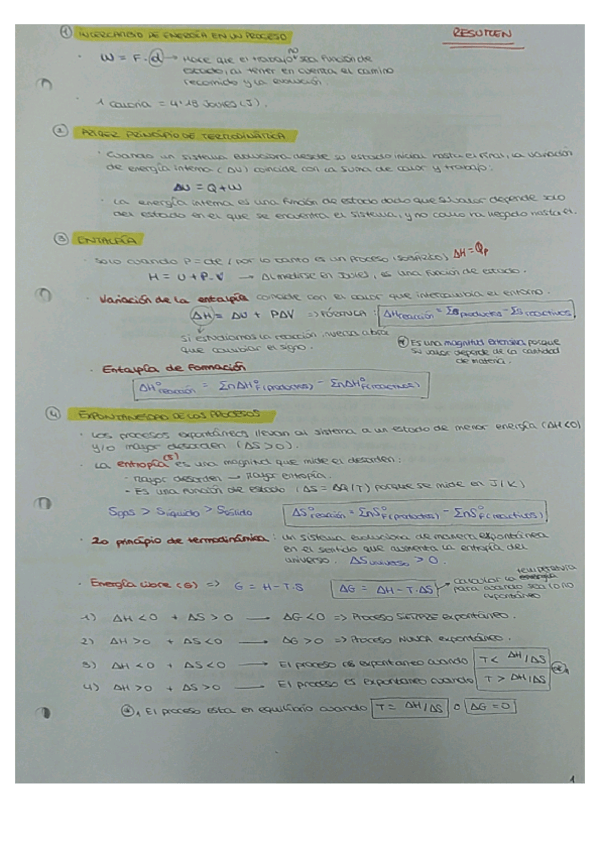 RESUMEN
① INTERCAMBIO DE ENERGÍA EN UN PROCESO
· W = F · d → Hace que el trabajo no sea función de
estado, al tener en cuenta el camino
recorrido y la evolución.
· 1 caloría = 4'18 Joules (J).
② PRIMER PRINCIPIO DE TERMODINÁMICA
· Cuando un sistema evoluciona desde su estado inicial hasta el final, la variación
de energía interna (ΔU) coincide con la suma de calor y trabajo.
ΔU = Q + W
· La energía interna es una función de estado dado que su valor depende solo
del estado en el que se encuentra el sistema, y no como ha llegado hasta él.
③ ENTALPÍA
· Solo cuando P = cte / por lo tanto es un proceso isobárico) ΔH = Qp
H = U + P·V → Al medirse en Joules, es una función de estado.
· Variación de la entalpía coincide con el calor que intercambia el entorno.
ΔH = ΔU + PΔV => FÓRMULA: ΔH reacción = Σ productos - Σ reactivos
Si estudiamos la reacción inversa habrá
que cambiar el signo.
Es una magnitud extensiva porque
su valor depende de la cantidad
de materia.
· Entalpía de Formación
ΔH° reacción = ΣnΔH° F(productos) - ΣnΔH° F(reactivos)
④ EXPONTANEIDAD DE LOS PROCESOS
· Los procesos expontáneos llevan al sistema a un estado de menor energía (ΔH<0)
y/o mayor desorden (ΔS>0).
· La entropía (S) es una magnitud que mide el desorden:
- Mayor desorden → Mayor entropía.
- Es una función de estado (ΔS = ΔQ/T) porque se mide en J/K)
Sgas > Slíquido > Ssólido ΔS° reacción = ΣnS° F(productos) - ΣnS° F(reactivos)
· 2o principio de termodinámica: un sistema evoluciona de manera expontánea
en el sentido que aumenta la entropía del
universo. ΔS universo > 0.
· Energía libre (G) => G = H - T·S ΔG = ΔH - T·ΔS calcular la temperatura
para cuando sea o no
expontáneo
1) ΔH < 0 + ΔS > 0 → ΔG < 0 => Proceso SIEMPRE expontáneo.
2) ΔH > 0 + ΔS < 0 → ΔG > 0 => Proceso NUNCA expontáneo.
3) ΔH < 0 + ΔS < 0 → El proceso es expontáneo cuando T < ΔH/ΔS
4) ΔH > 0 + ΔS > 0 → El proceso es expontáneo cuando T > ΔH/ΔS
El proceso esta en equilibrio cuando T = ΔH/ΔS o ΔG = 0
1